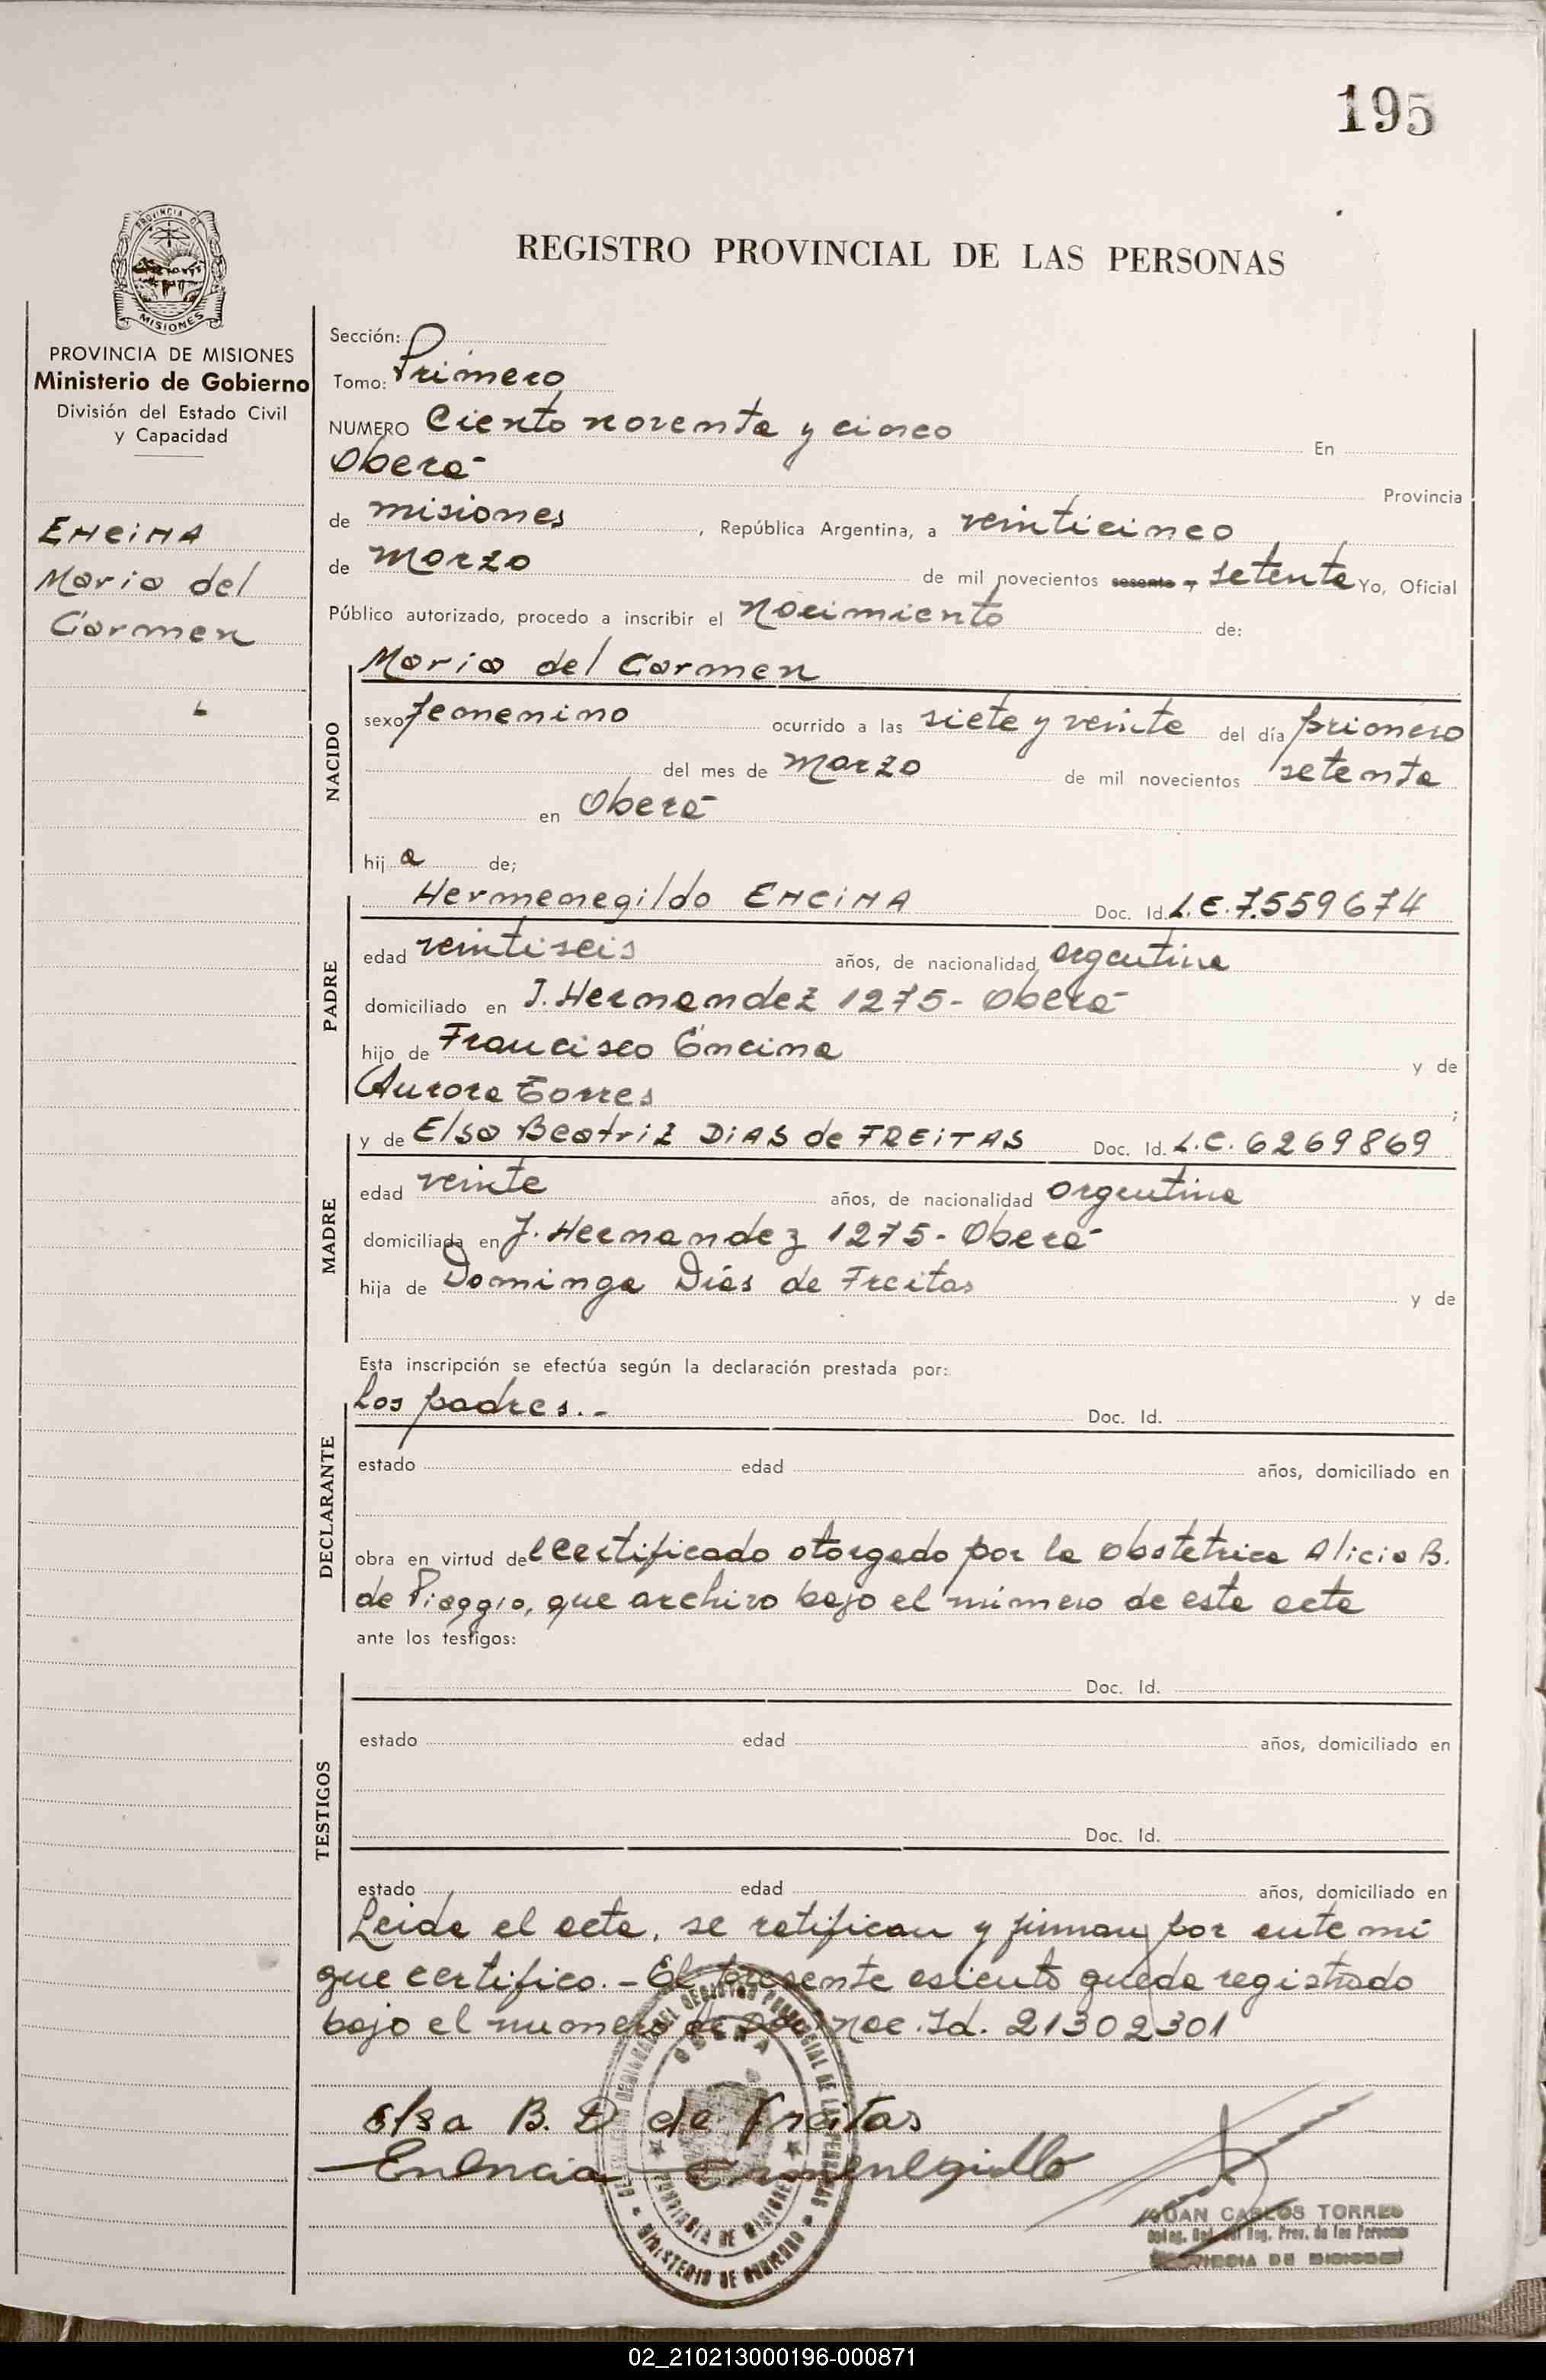 195
PROVINCIA DE
MISIONES
REGISTRO PROVINCIAL DE LAS PERSONAS
PROVINCIA DE MISIONES
Ministerio de Gobierno
División del Estado Civil
y Capacidad
ENCINA
Maria del
Carmen
Sección:
Tomo: Primero
NUMERO Ciento noventa y cinco En
Oberá Provincia
de misiones, República Argentina, a veinticinco
de Marzo de mil novecientos sesenta y setenta Yo, Oficial
Público autorizado, procedo a inscribir el Nacimiento de:
NACIDO
Maria del Carmen
sexo femenino ocurrido a las siete y veinte del día primero
del mes de Marzo de mil novecientos setenta
en Oberá
hija de;
PADRE
Hermenegildo ENCINA Doc. Id. L.E. 7.559674
edad veintiseis años, de nacionalidad argentina
domiciliado en J. Hernandez 1275- Oberá
hijo de Francisco Encina y de
Aurora Torres ;
MADRE
y de Elsa Beatriz DIAS de FREITAS Doc. Id. L.C. 6269869
edad veinte años, de nacionalidad argentina
domiciliada en J. Hernandez 1275- Oberá
hija de Dominga Días de Freitas y de
DECLARANTE
Esta inscripción se efectúa según la declaración prestada por:
los padres.- Doc. Id.
estado edad años, domiciliado en
obra en virtud del certificado otorgado por la obstetrica Alicia B.
de Piaggio, que archivo bajo el número de este acta
ante los testigos:
TESTIGOS
Doc. Id.
estado edad años, domiciliado en
Doc. Id.
estado edad años, domiciliado en
Leida el acta, se ratifican y firman por ante mi
que certifico.- El presente asiento queda registrado
bajo el numero de Doc. Nac. Id. 21302301
Elsa B. D de freitas
Enencia Ermenegildo
JUAN CARLOS TORRES
Reg. Prov. de las Personas
PROVINCIA DE MISIONES
OBERA
PROVINCIA DE MISIONES
MINISTERIO DE GOBIERNO
02_210213000196-000871